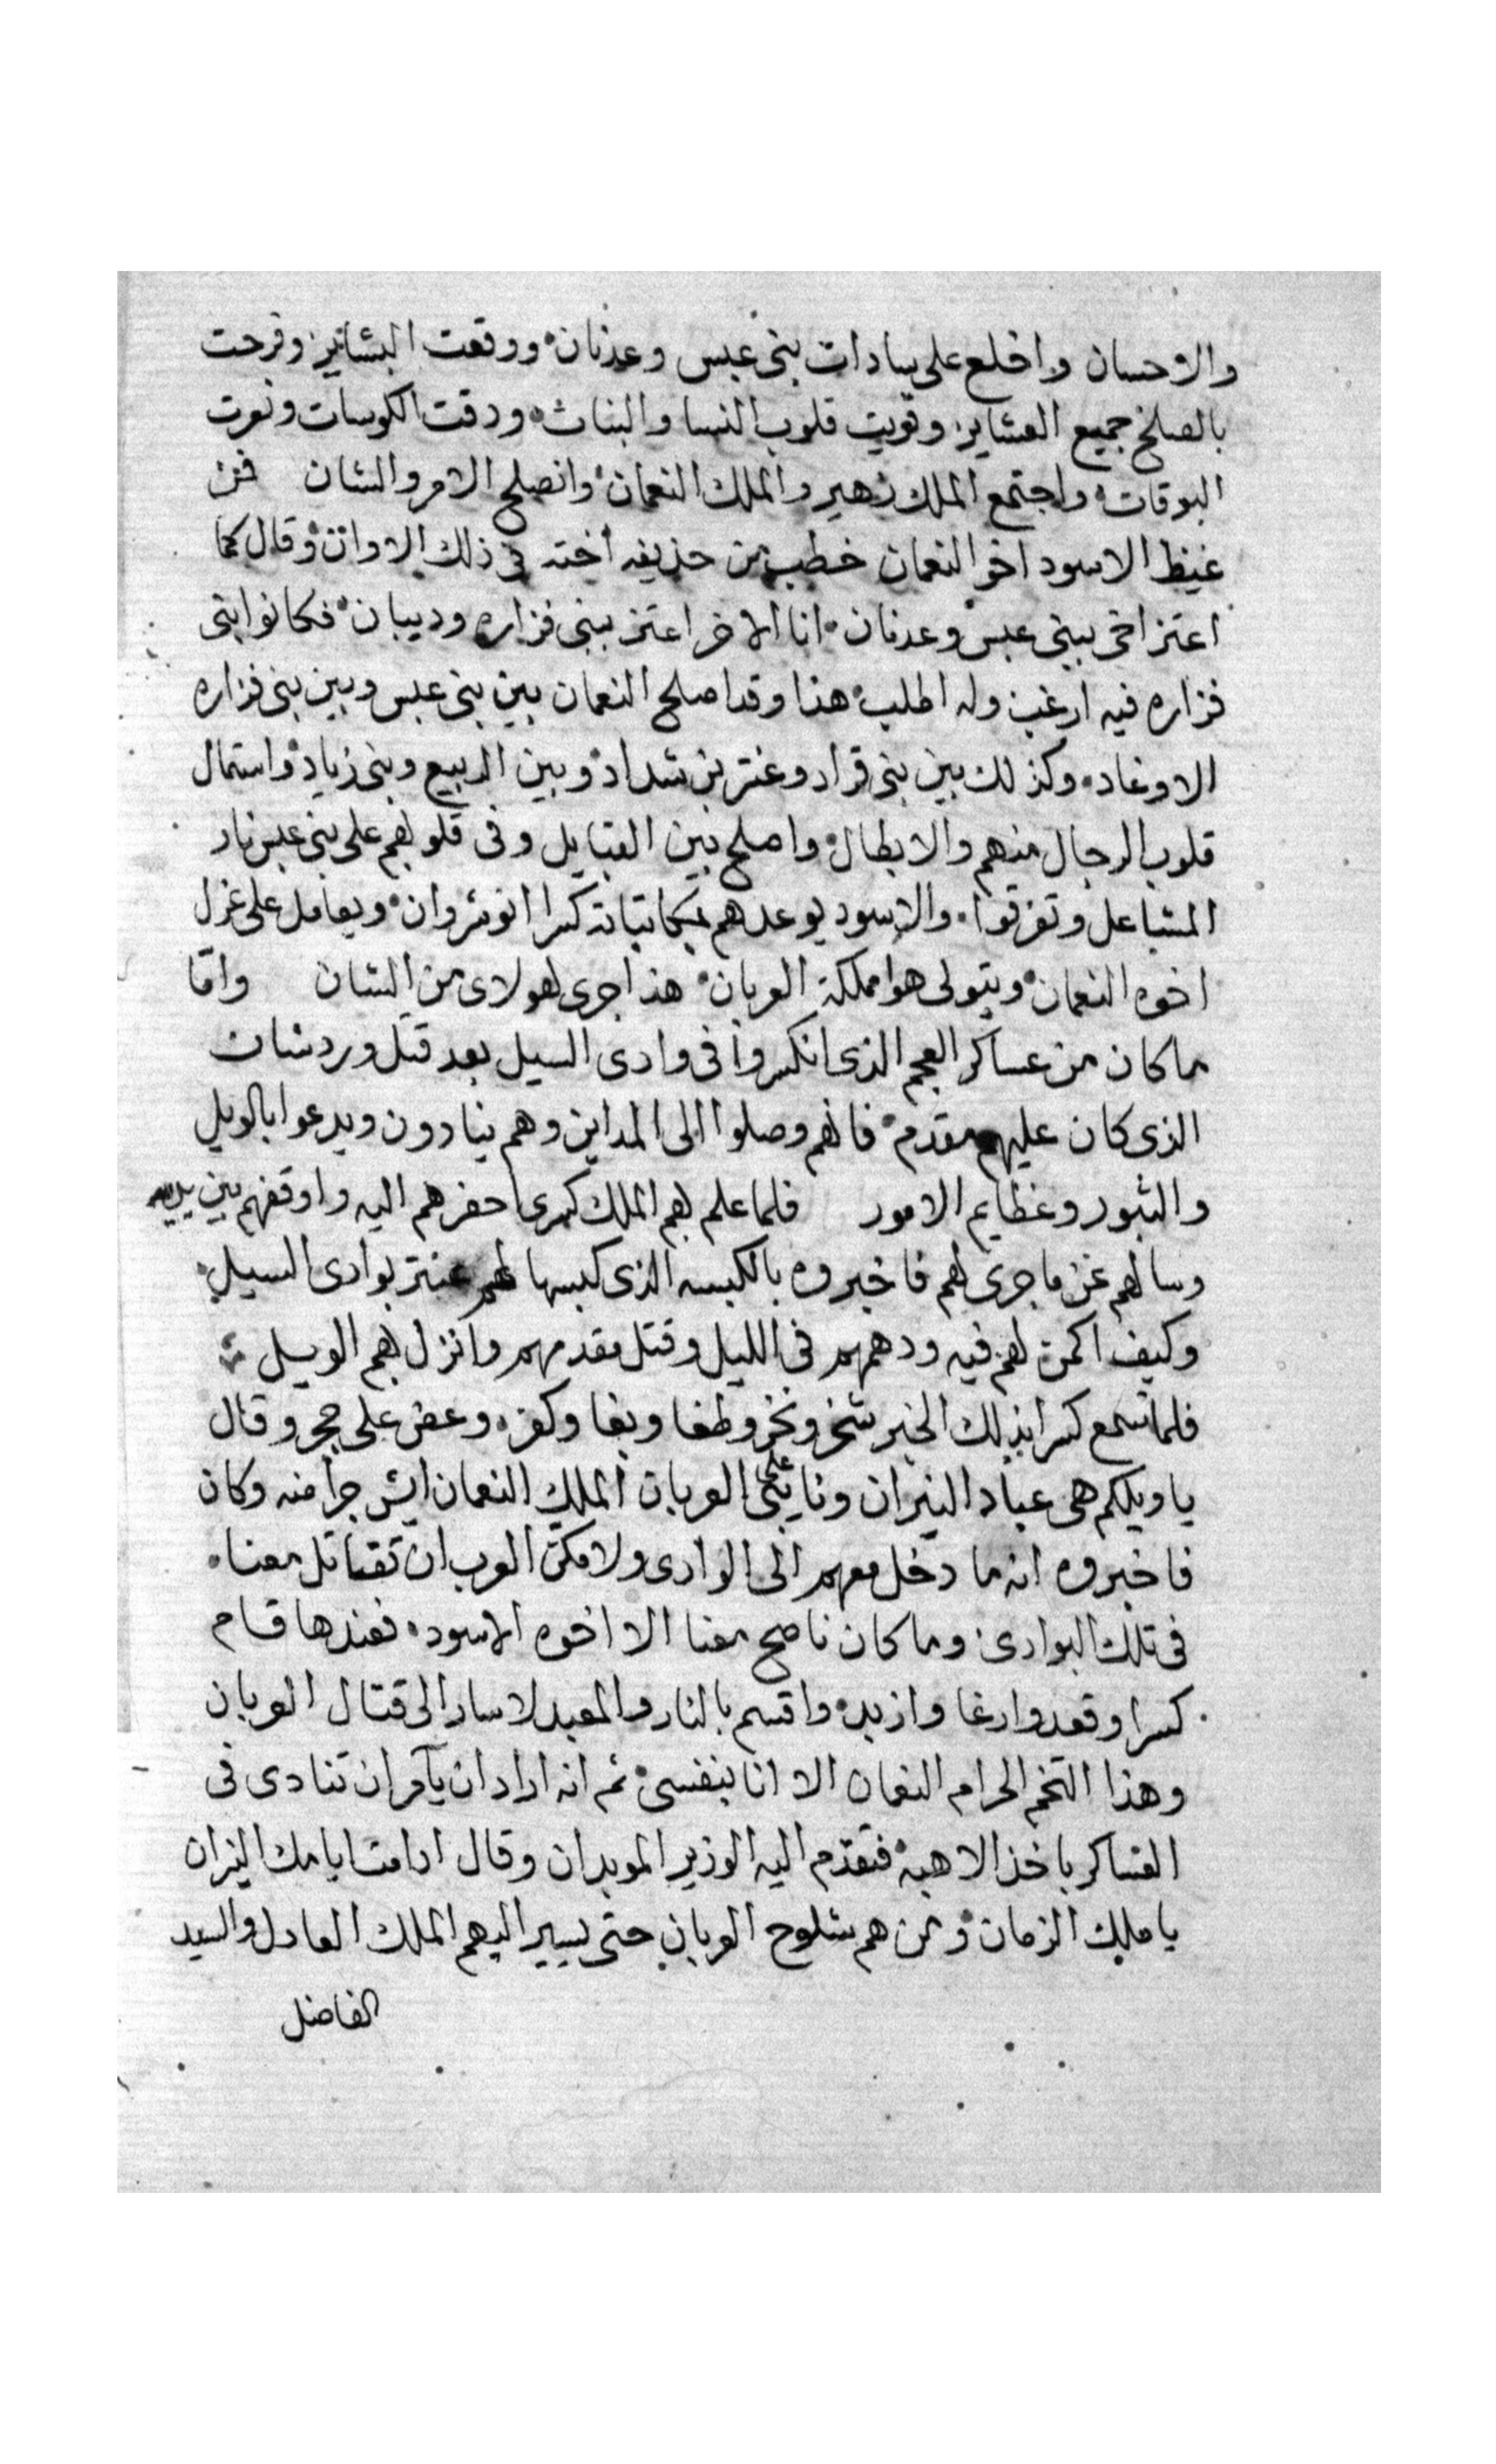 والاحسان واخلع على سادات بنى عبس وعدنان ووقعت البشاير وفرحت
بالصلح جميع العشاير وقويت قلوب النسا والبنات ودقت الكوسات ونعرت
البوقات واجتمع الملك زهير والملك النعمان وانصلح الامر والشان فمن
غيظ الاسود اخو النعمان خطب من حذيفه اخته فى ذلك الاوان وقال كما
اعتز اخى ببنى عبس وعدنان انا الاخر اعتز ببنى فزاره وديبان فكانوا بنى
فزاره فيه ارغب وله اطلب هذا وقد اصلح النعمان بين بنى عبس وبين بنى فزاره
الاوغاد وكذلك بين بنى قراد وعنتر بن شداد وبين الربيع وبنى زياد واستمال
قلوب الرجال منهم والابطال واصلح بين القبايل وفى قلوبهم على بنى عبس نار
المشاعل وتفرقوا والاسود يوعدهم بمكاتباته كسرا انوشروان ويعامل على عزل
اخوه النعمان ويتولى هوا مملكة العربان هذا جرى لهولاى من الشان واما
ما كان من عساكر العجم الذى انكسروا فى وادى السيل بعد قتل وردشان
الذى كان عليهم مقدم فانهم وصلوا الى المداين وهم ينادون ويدعوا بالويل
والثبور وعظايم الامور فلما علم بهم الملك كسرى احضرهم اليه واوقفهم بين يديه
وسالهم عن ما جرى لهم فاخبروه بالكبسه الذى كبسها لهم عنتر بوادى السيل
وكيف اكمن لهم فيه ودهمهم فى الليل وقتل مقدمهم وانزل بهم الويل
فلما سمع كسرا بذلك الخبر شخر ونخر وطغا وبغا وكفر وعض على حجر وقال
يا ويلكم هى عباد النيران ونايبى على العربان الملك النعمان ايش جرا منه وكان
فاخبروه انه ما دخل معهم الى الوادى ولا مكن العرب ان تقتاتل معنا
فى تلك البوادى وما كان ناصح معنا الا اخوه الاسود فعندها قام
كسرا وقعد وارغا وازبد واقسم بالنار والمعبد لا سار الى قتال العربان
وهذا التخم الحرام النعمان الا انا بنفسى ثم انه اراد ان يآمر ان تنادى فى
العساكر باخذ الاهبه فتقدم اليه الوزير الموبدان وقال ادامت ايامك النيران
يا ملك الزمان ومن هم شلوح العربان حتى يسير اليهم الملك العادل والسيد
الفاضل